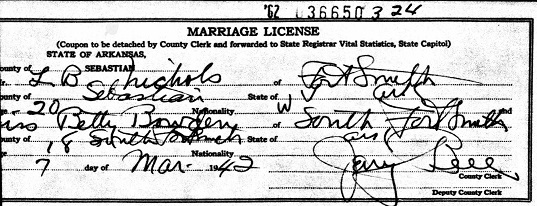 '62 036650 324
MARRIAGE LICENSE
(Coupon to be detached by County Clerk and forwarded to State Registrar Vital Statistics, State Capitol)
STATE OF ARKANSAS,
ounty of SEBASTIAN
r. L B Nichols of Fort Smith
ounty of Sebastian State of Ark
ge 20 Nationality W and
iss Bowden of South Fort Smith
ounty of Sebastian State of Ark
ge 18 Nationality
7 day of Mar- 1942
County Clerk
Deputy County Clerk